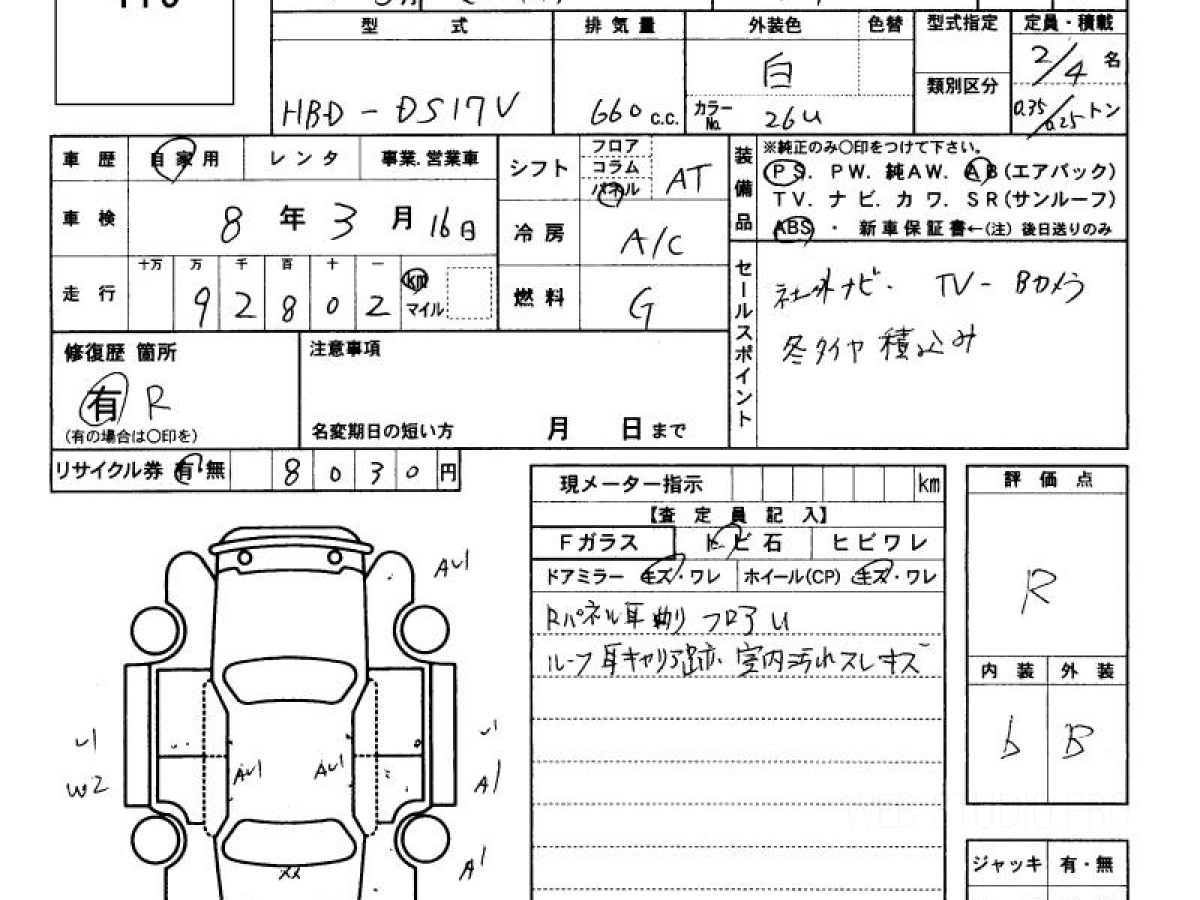 型 式 排気量 外装色 色替 型式指定 定員・積載
HBD-DS17V 660 c.c. 白 2/4名
類別区分
カラーNo. 26U 0.35/0.25トン
車歴 自家用 レンタ 事業.営業車
車検 8年3月16日
走行 十万 万 千 百 十 一
9 2 8 0 2 km マイル
シフト フロア コラム パネル AT
冷房 A/C
燃料 G
装備品 ※純正のみ〇印をつけて下さい。
PS. PW. 純AW. AB(エアバック)
TV. ナビ. カワ. SR(サンルーフ)
ABS ・ 新車保証書←(注) 後日送りのみ
セールスポイント
社外ナビ. TV-Bカメラ
冬タイヤ積込み
修復歴 箇所
有 R
(有の場合は〇印を)
注意事項
名変期日の短い方 月 日まで
リサイクル券 有・無 8 0 3 0 円
現メーター指示 km
【査定員記入】
Fガラス トビ石 ヒビワレ
ドアミラー キズ・ワレ ホイール(CP) キズ・ワレ
Rパネル耳曲り フロアU
ルーフ耳キャリア跡. 室内汚れスレキズ
評価点
R
内装 外装
b B
ジャッキ 有・無
AU1
U1
W2
AU1
AU1
A1
A1
XX
WEB-STUDIO.PRO